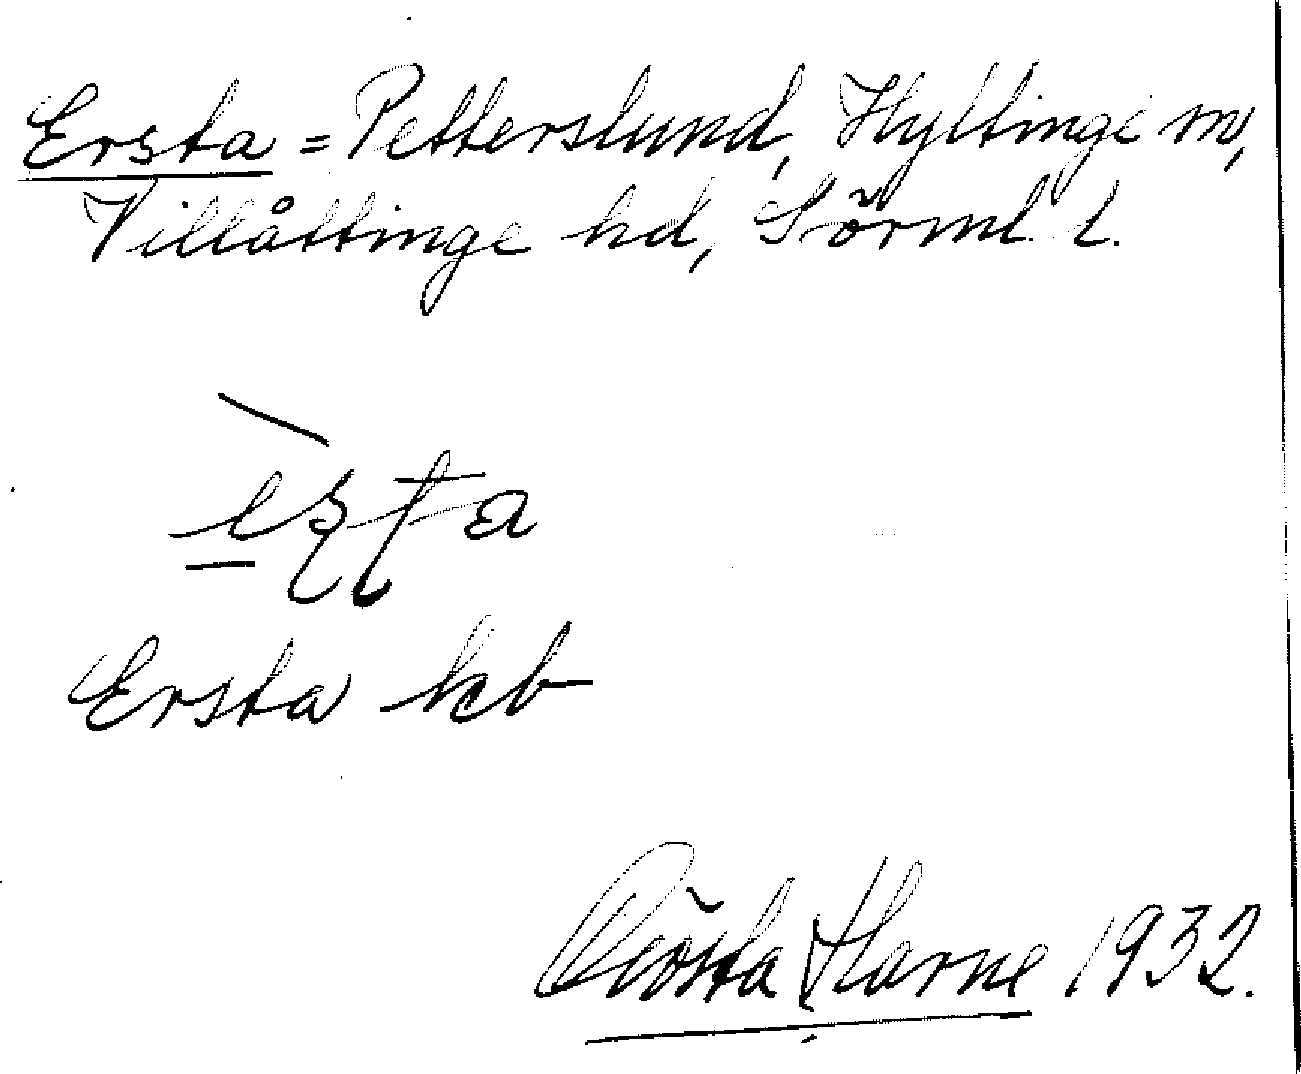 Ersta = Petterslund, Hyltinge sn,
Villåttinge hd, Sörml. l.
Ersta kb
Gösta Harne 1932.